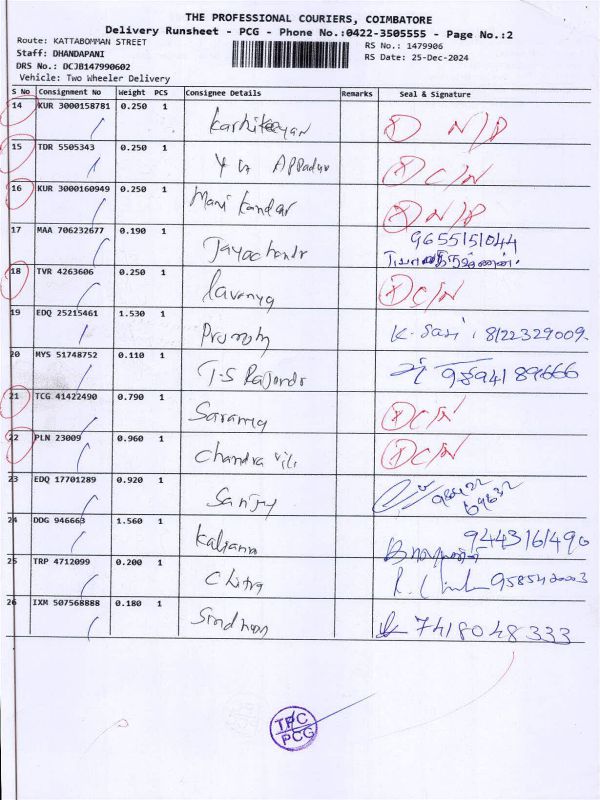 THE PROFESSIONAL COURIERS, COIMBATORE
Delivery Runsheet - PCG - Phone No.:0422-3505555 - Page No.:2
Route: KATTABOMMAN STREET
RS No.: 1479906
Staff: DHANDAPANI
RS Date: 25-Dec-2024
DRS No.: DCJB147990602
Vehicle: Two Wheeler Delivery
S No Consignment No Weight PCS Consignee Details Remarks Seal & Signature
14 KUR 3000158781 0.250 1 Karthikeyan N/P
15 TDR 5505343 0.250 1 C/N
16 KUR 3000160949 0.250 1 Mani Kandar N/P
17 MAA 706232677 0.190 1 Jayachandr 9655151044
18 TVR 4263606 0.250 1 Lavanya C/N
19 EDQ 25215461 1.530 1 K. Sasi 8122329009
20 MYS 51748752 0.110 1 T.S Rajendr 9894189666
21 TCG 41422490 0.790 1 Saranya C/N
22 PLN 23009 0.960 1 Chandra C/N
23 EDQ 17701289 0.920 1 Sanjay
24 DDG 946663 1.560 1 Kalyana 9443161490
25 TRP 4712099 0.200 1 Chitra
26 IXM 507568888 0.180 1 7418048333
TPC
PCG